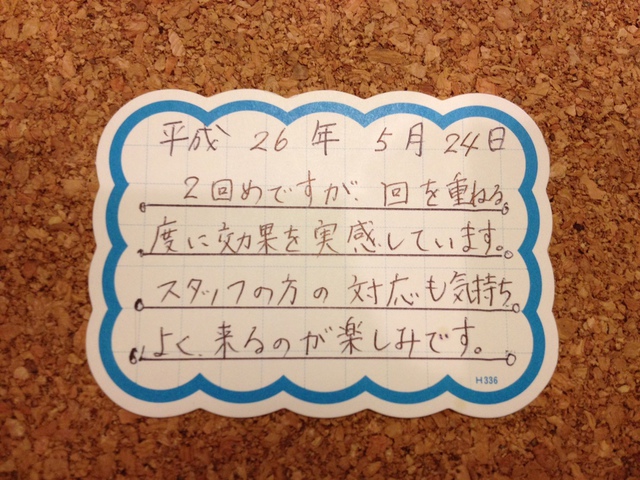 平成 26 年 5月 24日
2回めですが、回を重ねる
度に効果を実感しています。
スタッフの方の 対応も気持ち
よく、来るのが楽しみです。
H336